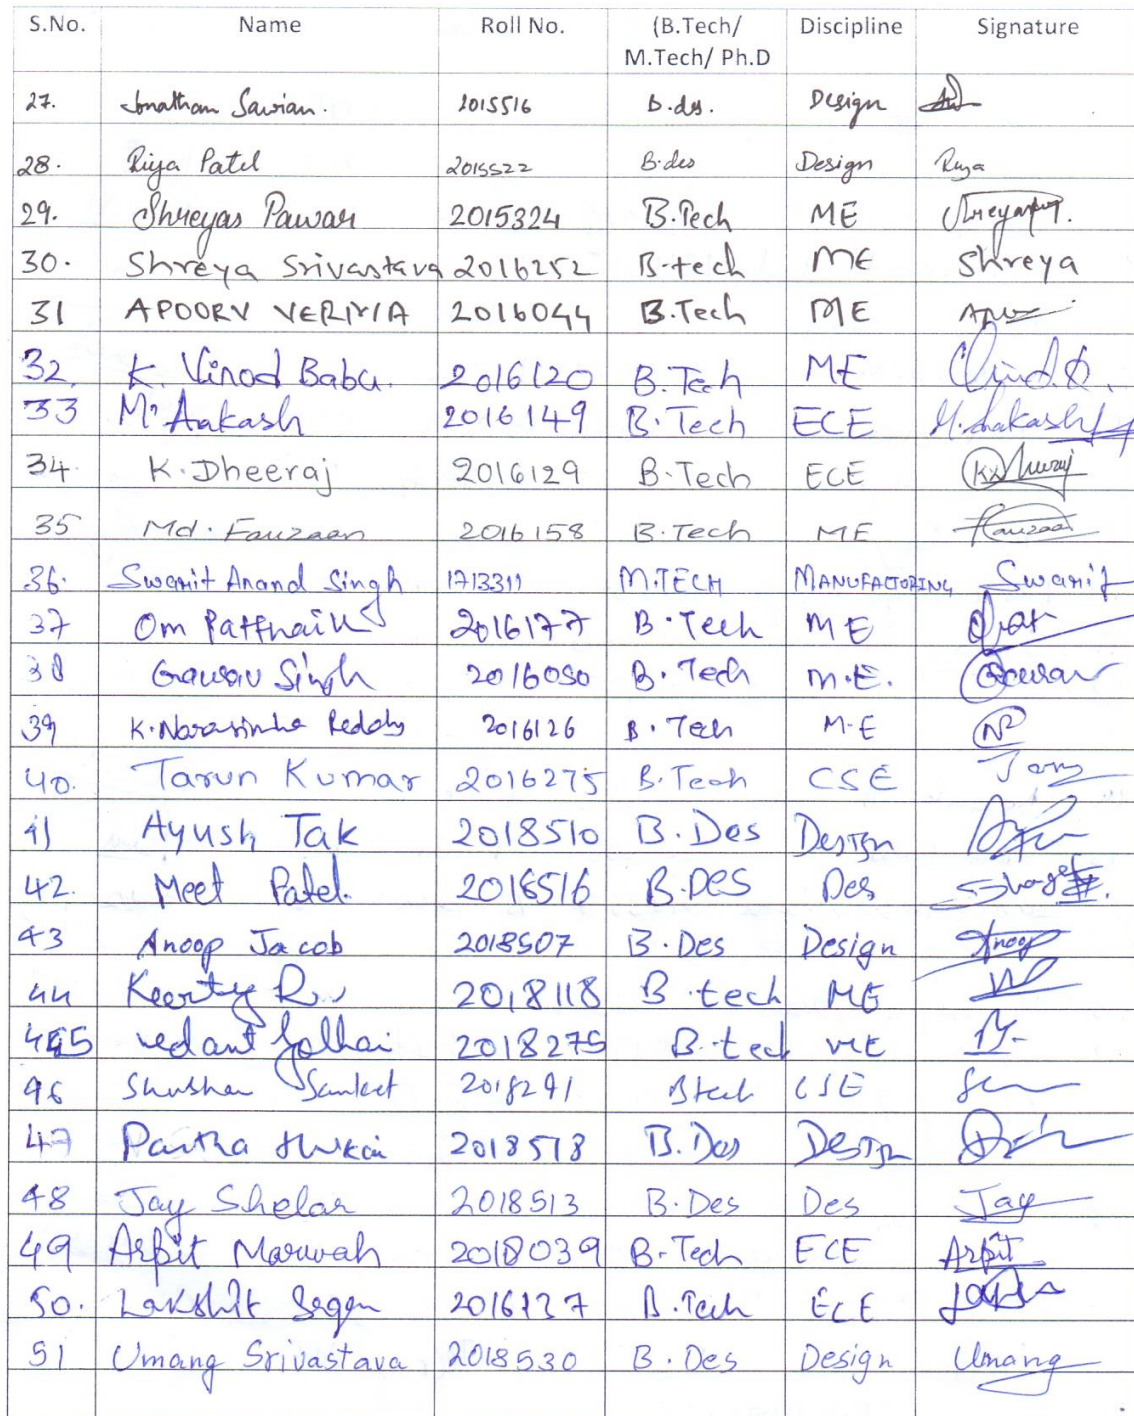 S.No. Name Roll No. (B.Tech/ M.Tech/ Ph.D Discipline Signature
27. Jonathan Sawian. 2015516 B.des. Design
28. Riya Patel 2015522 B.des Design Riya
29. Shreyas Pawar 2015324 B.Tech ME
30. Shreya Srivastava 2016252 B-tech ME Shreya
31 APOORV VERMA 2016044 B.Tech ME
32. K. Vinod Babu. 2016120 B.Tech ME
33 M. Aakash 2016149 B.Tech ECE M.Aakash
34. K.Dheeraj 2016129 B.Tech ECE
35 Md. Fauzaan 2016158 B.Tech ME Fauzaan
36. Swarit Anand Singh 1713311 M.TECH MANUFACTORING Swarit
37 Om Pattnaik 2016177 B.Tech ME
38 Gaurav Singh 2016080 B.Tech M.E. Gaurav
39 K.Narasimha Reddy 2016126 B.Tech M.E
40. Tarun Kumar 2016275 B.Tech CSE
41 Ayush Tak 2018510 B.Des Design
42. Meet Patel. 2018516 B.DES Des
43 Anoop Jacob 2018507 B.Des Design Anoop
44 Keerty R 2018118 B.tech ME
45 vedant 2018275 B.tech ME
46 Sanket 2018291 Btech CSE
47 Partha 2018518 B.Des Design
48 Jay Shelar 2018513 B.Des Des Jay
49 Arpit Marwah 2018039 B.Tech ECE Arpit
50. Lakshit 2016137 B.Tech ECE
51 Umang Srivastava 2018530 B.Des Design Umang